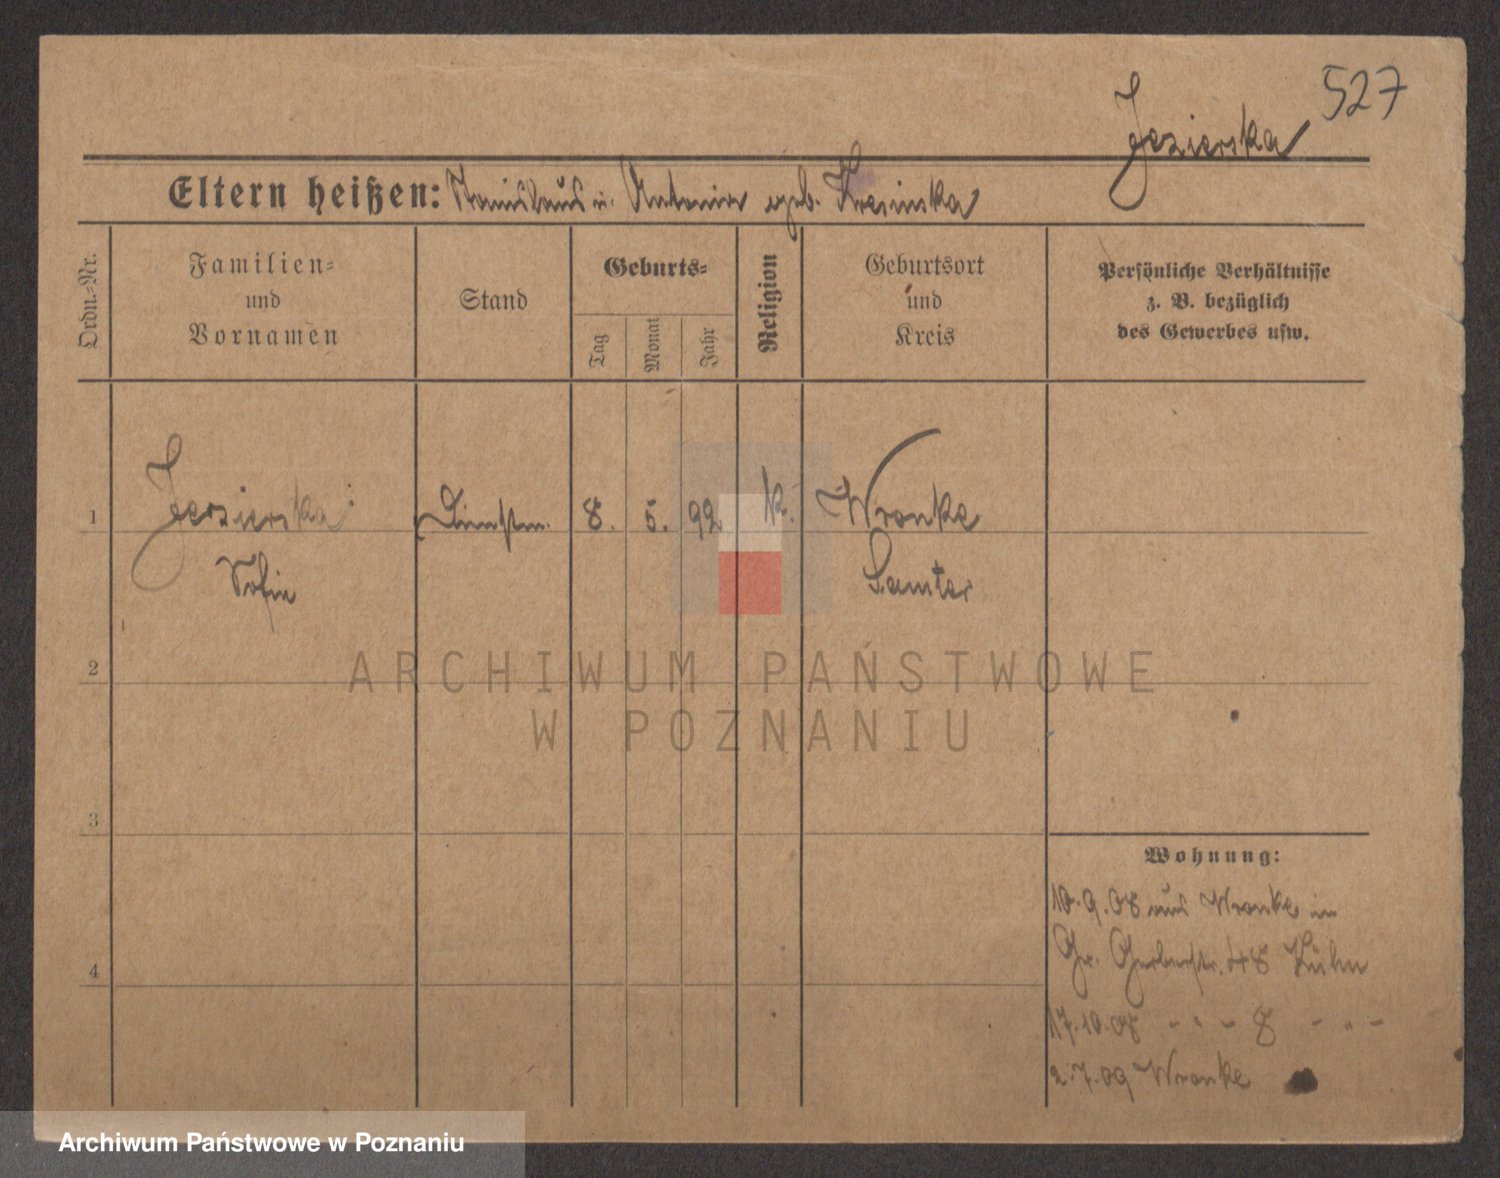 527
Jezierska
Eltern heißen: Stanislaus u. Antonie geb. Kresinska
Ordn.-Nr.
Familien-
und
Vornamen
Stand
Geburts-
Tag
Monat
Jahr
Religion
Geburtsort
und
Kreis
Persönliche Verhältnisse
z. B. bezüglich
des Gewerbes usw.
1 Jezierska Dienstm. 8. 5. 92 k. Wronke
Sofie Samter
2
3
4
Wohnung:
10.9.08 aus Wronke in
Gr. Gerberstr. 48 Kühn
17.10.08 - " - 8 - " -
2.7.09 Wronke
ARCHIWUM PAŃSTWOWE
W POZNANIU
Archiwum Państwowe w Poznaniu